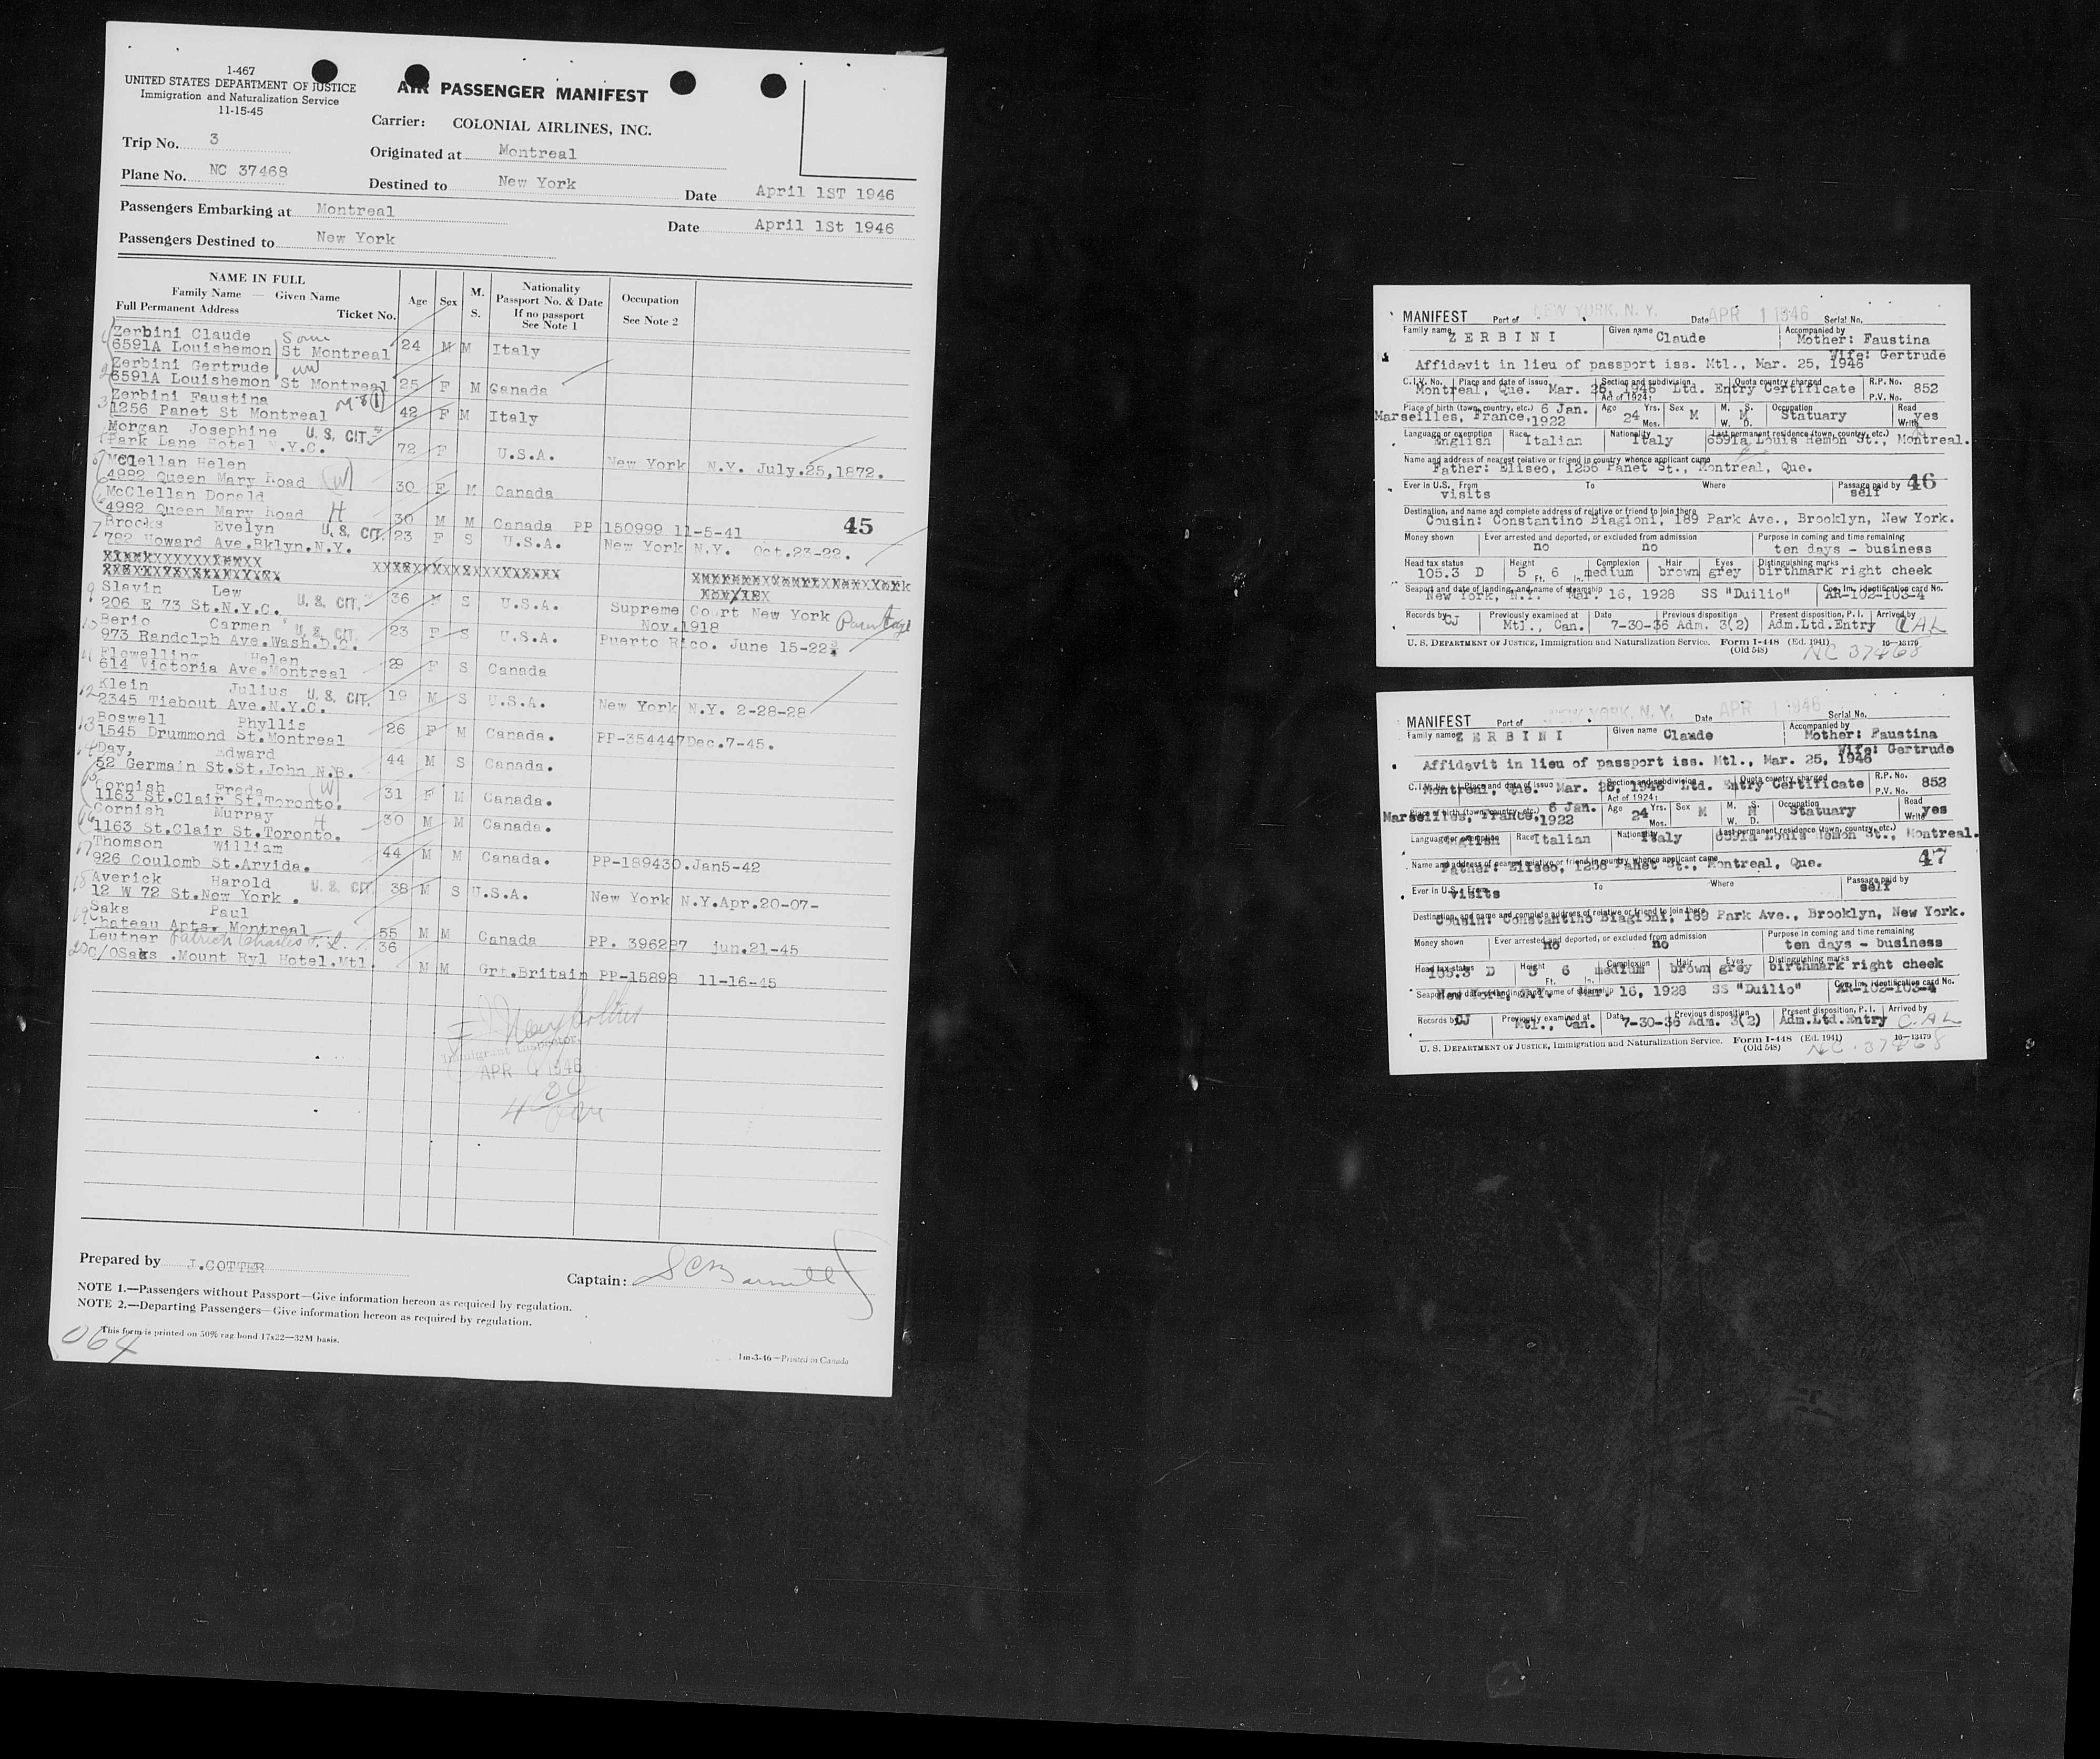 1-467
UNITED STATES DEPARTMENT OF JUSTICE
Immigration and Naturalization Service
11-15-45
AIR PASSENGER MANIFEST
Carrier: COLONIAL AIRLINES, INC.
Trip No. 3
Originated at Montreal
Plane No. NC 37468
Destined to New York Date April 1ST 1946
Passengers Embarking at Montreal Date April 1St 1946
Passengers Destined to New York
NAME IN FULL
Family Name — Given Name
Full Permanent Address Ticket No.
Age Sex M. S.
Nationality
Passport No. & Date
If no passport
See Note 1
Occupation
See Note 2
Zerbini Claude
6591A Louishemon St Montreal 24 M M Italy
Zerbini Gertrude
6591A Louishemon St Montreal 25 F M Canada
3 Zerbini Faustina
1256 Panet St Montreal 42 F M Italy
Morgan Josephine U. S. CIT.
Park Lane Hotel N.Y.C. 72 F U.S.A. New York N.Y. July.25,1872.
McClellan Helen (W)
4982 Queen Mary Road 30 F M Canada
McClellan Donald H
4982 Queen Mary Road 30 M M Canada PP 150999 11-5-41 45
7 Brooks Evelyn U. S. CIT.
782 Howard Ave.Bklyn.N.Y. 23 F S U.S.A. New York N.Y. Oct.23-22.
9 Slavin Lew U. S. CIT.
206 E 73 St.N.Y.C. 36 S U.S.A. Supreme Court New York
Nov.1918
10 Berio Carmen U. S. CIT.
973 Randolph Ave.Wash.D.C. 23 F S U.S.A. Puerto Rico. June 15-22
11 Flowelling Helen
614 Victoria Ave.Montreal 29 F S Canada
12 Klein Julius U. S. CIT.
2345 Tiebout Ave.N.Y.C. 19 M S U.S.A. New York N.Y. 2-28-28
13 Boswell Phyllis
1545 Drummond St.Montreal 26 F M Canada. PP-354447Dec.7-45.
14 Day, Edward
52 Germain St.St.John N.B. 44 M S Canada.
15 Cornish Freda (W)
1163 St.Clair St.Toronto. 31 F M Canada.
16 Cornish Murray H
1163 St.Clair St.Toronto. 30 M M Canada.
17 Thomson William
926 Coulomb St.Arvida. 44 M M Canada. PP-189430.Jan5-42
18 Averick Harold U. S. CIT.
12 W 72 St.New York . 38 M S U.S.A. New York N.Y.Apr.20-07-
19 Saks Paul
Chateau Apts. Montreal 55 M M Canada PP. 396287 jun.21-45
Leutner Patrick Charles 36
20 C/OSaks .Mount Ryl Hotel.Mtl. M M Grt.Britain PP-15898 11-16-45
Immigrant Inspector
APR 1 1946
Prepared by J.COTTER
Captain:
NOTE 1.—Passengers without Passport—Give information hereon as required by regulation.
NOTE 2.—Departing Passengers—Give information hereon as required by regulation.
This form is printed on 50% rag bond 17x22—32M basis.
064
1m-3-46—Printed in Canada
MANIFEST Port of NEW YORK, N. Y. Date APR 1 1946 Serial No.
Family name ZERBINI Given name Claude Accompanied by Mother: Faustina
Wife: Gertrude
Affidavit in lieu of passport iss. Mtl., Mar. 25, 1946
C.I.V. No. Place and date of issue Section and subdivision Quota country charged R.P. No.
Montreal, Que. Mar. 26, 1946 Ltd. Entry Certificate 852
Act of 1924: P.V. No.
Place of birth (town, country, etc.) 6 Jan. Age Yrs. Sex M. S. Occupation Read
Marseilles, France,1922 24 Mos. M M W. D. Statuary Write yes
Language or exemption Race Nationality Last permanent residence (town, country, etc.)
English Italian Italy 6591a Louis Hemon St., Montreal.
Name and address of nearest relative or friend in country whence applicant came
Father: Eliseo, 1256 Panet St., Montreal, Que.
Ever in U.S. From To Where Passage paid by 46
visits self
Destination, and name and complete address of relative or friend to join there
Cousin: Constantino Biagioni, 189 Park Ave., Brooklyn, New York.
Money shown Ever arrested and deported, or excluded from admission Purpose in coming and time remaining
no no ten days - business
Head tax status Height Complexion Hair Eyes Distinguishing marks
105.3 D 5 Ft. 6 In. medium brown grey birthmark right cheek
Seaport and date of landing, and name of steamship Com. Im. identification card No.
New York, N.Y. Mar. 16, 1928 SS "Duilio" AR-102-103-4
Records by CJ Previously examined at Date Previous disposition Present disposition, P. I. Arrived by
Mtl., Can. 7-30-36 Adm. 3(2) Adm.Ltd.Entry CAL
U. S. DEPARTMENT OF JUSTICE, Immigration and Naturalization Service. Form I-448 (Ed. 1941) 16—13179
(Old 548) NC 37468
MANIFEST Port of NEW YORK, N. Y. Date APR 1 1946 Serial No.
Family name ZERBINI Given name Claude Accompanied by Mother: Faustina
Wife: Gertrude
Affidavit in lieu of passport iss. Mtl., Mar. 25, 1946
C.I.V. No. Place and date of issue Section and subdivision Quota country charged R.P. No.
Montreal, Que. Mar. 26, 1946 Ltd. Entry Certificate 852
Act of 1924: P.V. No.
Place of birth (town, country, etc.) 6 Jan. Age Yrs. Sex M. S. Occupation Read
Marseilles, France,1922 24 Mos. M M W. D. Statuary Write yes
Language or exemption Race Nationality Last permanent residence (town, country, etc.)
English Italian Italy 6591a Louis Hemon St., Montreal.
Name and address of nearest relative or friend in country whence applicant came 47
Father: Eliseo, 1256 Panet St., Montreal, Que.
Ever in U.S. From To Where Passage paid by
visits self
Destination, and name and complete address of relative or friend to join there
Cousin: Constantino Biagioni, 189 Park Ave., Brooklyn, New York.
Money shown Ever arrested and deported, or excluded from admission Purpose in coming and time remaining
no no ten days - business
Head tax status Height Complexion Hair Eyes Distinguishing marks
105.3 D 5 Ft. 6 In. medium brown grey birthmark right cheek
Seaport and date of landing, and name of steamship Com. Im. identification card No.
New York, N.Y. Mar. 16, 1928 SS "Duilio" AR-102-103-4
Records by CJ Previously examined at Date Previous disposition Present disposition, P. I. Arrived by
Mtl., Can. 7-30-36 Adm. 3(2) Adm.Ltd.Entry C.AL
U. S. DEPARTMENT OF JUSTICE, Immigration and Naturalization Service. Form I-448 (Ed. 1941) 16—13179
(Old 548) NC.37468